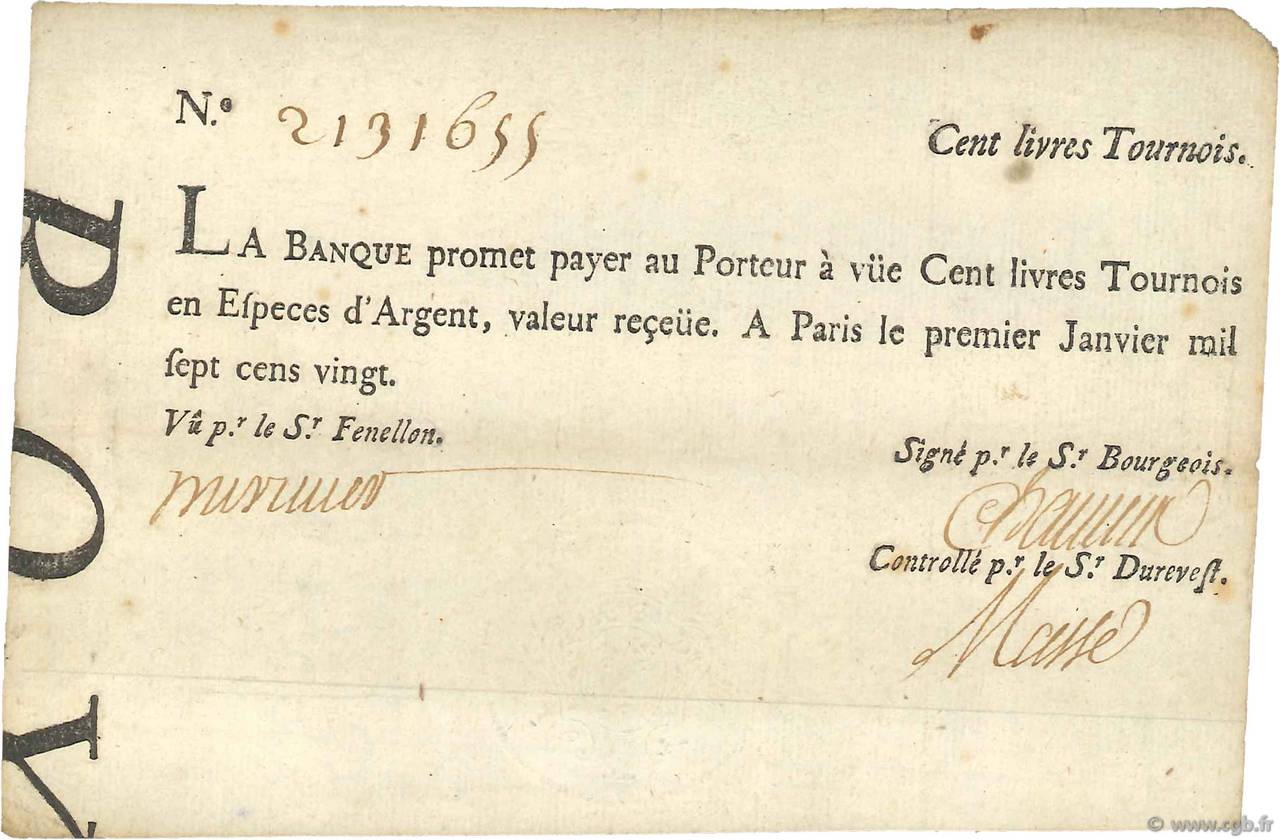 N.º 2131655
Cent livres Tournois.
LA BANQUE promet payer au Porteur à vüe Cent livres Tournois
en Eſpeces d'Argent, valeur reçeüe. A Paris le premier Janvier mil
ſept cens vingt.
Vû p.r le S.r Fenellon.
Signé p.r le S.r Bourgeois.
Controllé p.r le S.r Dureveſt.
Masse
R O Y
© www.cgb.fr